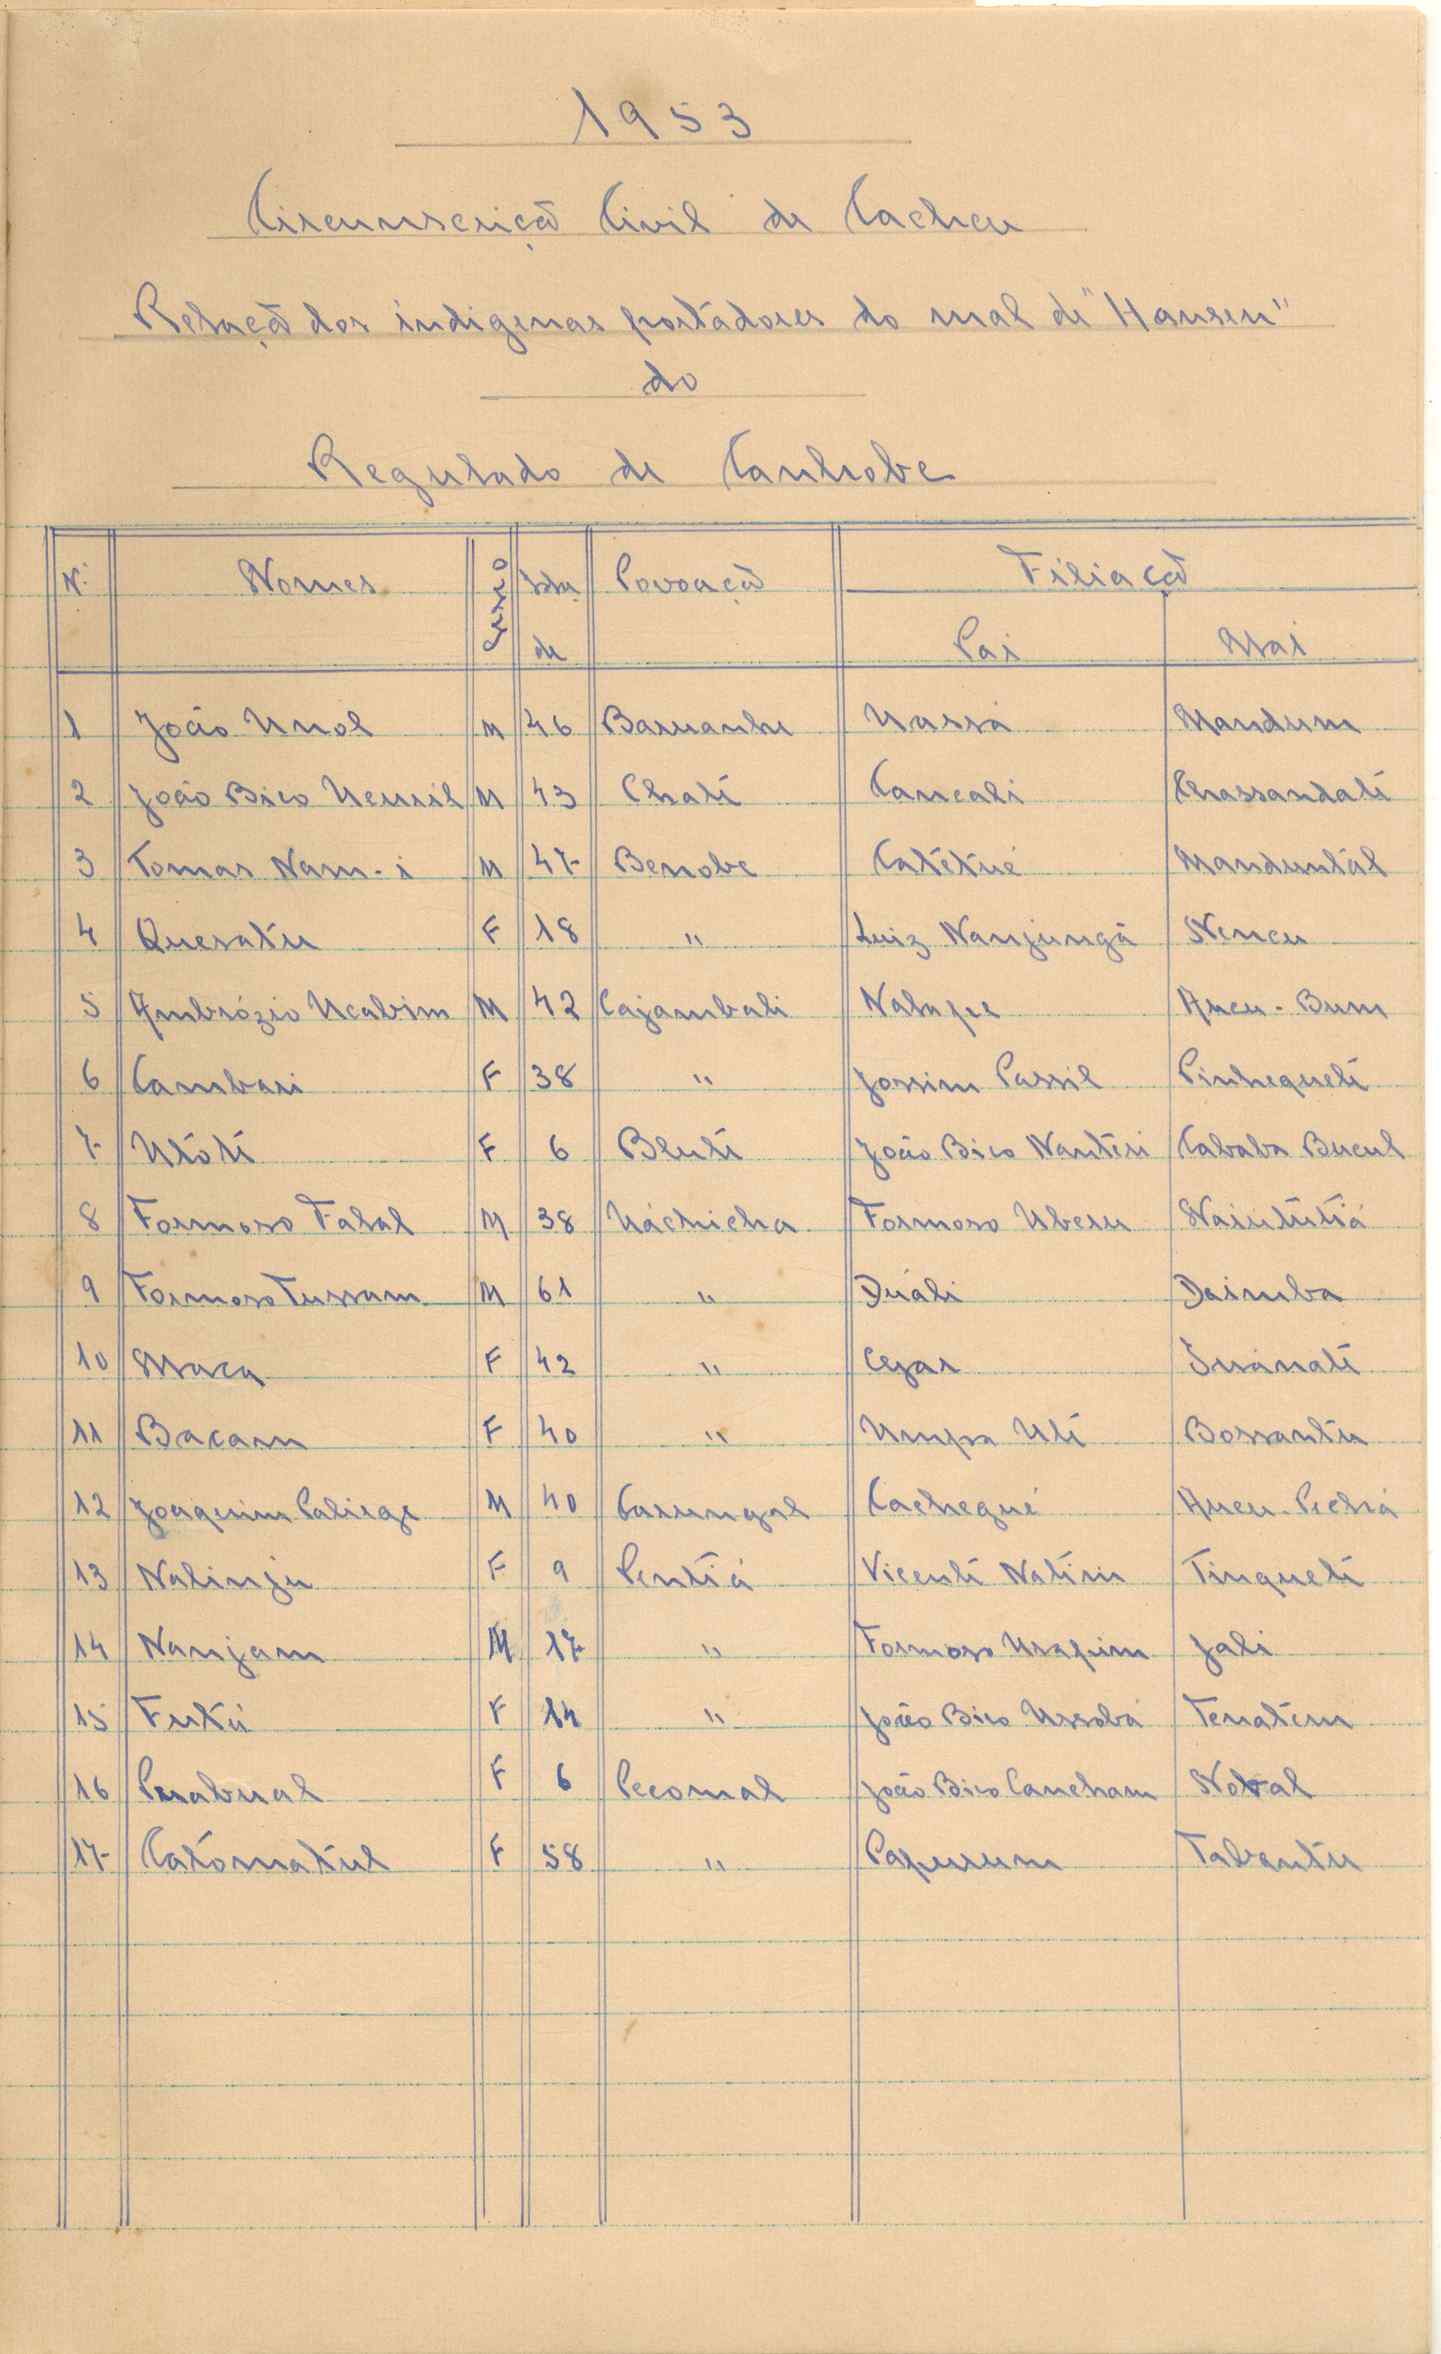 1953
Circumscriçã Civil de Cacheu
Relaçã dos indigenas portadores do mal de "Hansen"
do
Regulado de Canhobe
Nº Nomes Sexo Ida Povoaçã Filiaçã
de Pai Mai
1 João Unol M 46 Baruanhe Uassá Mandum
2 João Bico M 43 Chati Cancali Chassandati
3 Tomas Nam-i M 47 Benobe Catétué Manduntal
4 Quesatu F 18 " Luiz Nanjungá Nencu
5 Ambrózio Ucabim M 42 Cajambali Nalupe Aucu-Bum
6 Cambari F 38 " Jossim Passil Pinhequeti
7 Utóti F 6 Bluti João Bico Nanteri Cababa Bucul
8 Formoso Falal M 38 Uáchicha Formoso Uberu Naiutútiá
9 Formoso Tussam M 61 " Duáli Daimba
10 Maca F 42 " Cezar
11 Bacam F 40 " Umpa Uti Bossantu
12 Joaquim M 40 Carungal Cachegué Aucu-Pechá
13 Nalinju F 9 Pentiá Vicenti Natini Tinqueti
14 Nanjam M 17 " Formoso Usapim Jali
15 Futá F 14 " João Bico Ussobá Tenatem
16 F 6 Pecomal João Bico Cancham Nobal
17 Catómatul F 58 " Papurum Tabantu